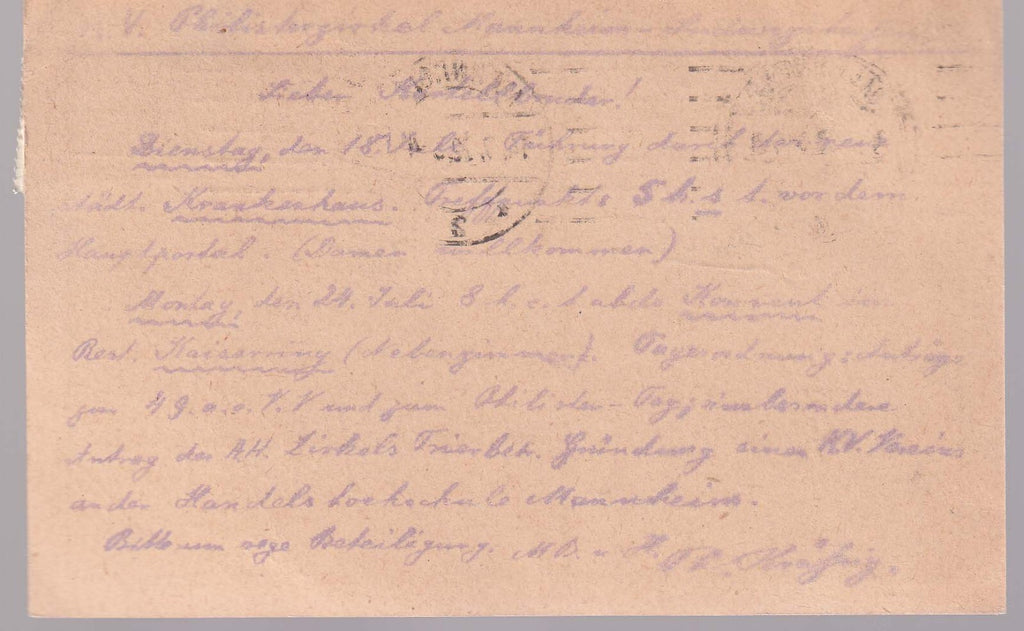 K. V. Philisterzirkel Mannheim-
Lieber Kartellbruder!
Dienstag, den 18. Juli Führung durch das neue
städt. Krankenhaus. Treffpunkt: 5 h. s. t. vor dem
Hauptportal. (Damen willkommen)
Montag, den 24. Juli 8 h. c. t. abds Konvent im
Rest. Kaiserring (Nebenzimmer). Tagesordnung: Anträge
zur 49. a. o. V. V und zum Philister-Tag, insbesondere
Antrag des AH. Zirkels Trier betr. Gründung eines K.V. Vereins
an der Handelshochschule Mannheim.
Bitte um rege Beteiligung. M. D. u. H.